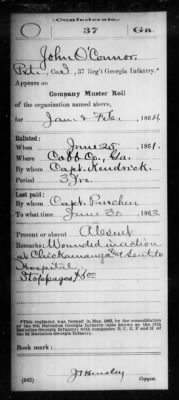 Confederate.
37 Ga.
John O'Connor
Pvt., Co. , 37 Reg't Georgia Infantry.*
Appears on
Company Muster Roll
of the organization named above,
for Jan. & Feb., 1864.
Enlisted:
When June 25, 1861.
Where Cobb Co., Ga.
By whom Capt. Kendrick
Period 3 Yrs.
Last paid:
By whom Capt.
To what time June 30, 1863.
Present or absent Absent
Remarks: Wounded in action
at Chickamauga and sent to
Hospital
Stoppages $
*This regiment was formed in May, 1863, by the consolidation
of the 9th Battalion Georgia Infantry
Book mark:
(642) Copyist.